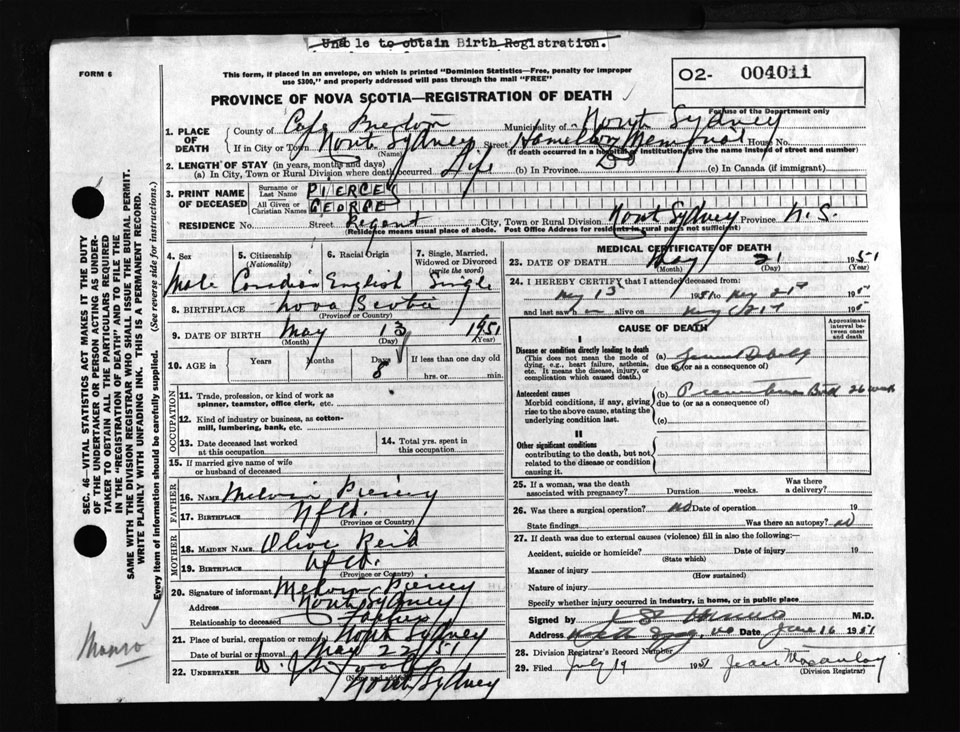 Unable to obtain Birth Registration.
FORM 6
This form, if placed in an envelope, on which is printed "Dominion Statistics—Free, penalty for improper
use $300," and properly addressed will pass through the mail "FREE"
O2- 004011
PROVINCE OF NOVA SCOTIA—REGISTRATION OF DEATH
For use of the Department only
1. PLACE OF DEATH
County of Cape Breton Municipality of North Sydney
If in City or Town North Sydney Street Hamilton Memorial House No.
(Name) (If death occurred in a hospital or institution, give the name instead of street and number)
2. LENGTH OF STAY (in years, months and days)
(a) In City, Town or Rural Division where death occurred Life (b) In Province (c) In Canada (if immigrant)
3. PRINT NAME OF DECEASED
Surname or Last Name PIERCEY
All Given or Christian Names GEORGE
RESIDENCE No. Street Regent City, Town or Rural Division North Sydney Province N.S.
(Residence means usual place of abode. Post Office Address for residents in rural parts not sufficient)
4. Sex 5. Citizenship (Nationality) 6. Racial Origin 7. Single, Married, Widowed or Divorced (write the word)
Male Canadian English Single
8. BIRTHPLACE Nova Scotia
(Province or Country)
9. DATE OF BIRTH May 13 1951
(Month) (Day) (Year)
10. AGE in Years Months Days 8 If less than one day old
hrs. or min.
OCCUPATION
11. Trade, profession, or kind of work as spinner, teamster, office clerk, etc.
12. Kind of industry or business, as cotton-mill, lumbering, bank, etc.
13. Date deceased last worked at this occupation
14. Total yrs. spent in this occupation
15. If married give name of wife or husband of deceased
FATHER
16. NAME Melvin Piercey
17. BIRTHPLACE Nfld.
(Province or Country)
MOTHER
18. MAIDEN NAME Olive Reid
19. BIRTHPLACE Nfld.
(Province or Country)
20. Signature of informant Melvin Piercey
Address North Sydney
Relationship to deceased Father
21. Place of burial, cremation or removal North Sydney
Date of burial or removal May 22/51
22. UNDERTAKER
(Name and address)
North Sydney
MEDICAL CERTIFICATE OF DEATH
23. DATE OF DEATH May 21 1951
(Month) (Day) (Year)
24. I HEREBY CERTIFY that I attended deceased from:
May 13 1951 to May 21st 19
and last saw h alive on May 21st 19
CAUSE OF DEATH
Approximate interval between onset and death
I
Disease or condition directly leading to death
(This does not mean the mode of dying, e.g., heart failure, asthenia, etc. It means the disease, injury, or complication which caused death.)
(a)
due to (or as a consequence of)
Antecedent causes
Morbid conditions, if any, giving rise to the above cause, stating the underlying condition last.
(b) Premature Birth 26 weeks
due to (or as a consequence of)
(c)
II
Other significant conditions
contributing to the death, but not related to the disease or condition causing it.
25. If a woman, was the death associated with pregnancy? Duration weeks. Was there a delivery?
26. Was there a surgical operation? no Date of operation 19
State findings Was there an autopsy? no
27. If death was due to external causes (violence) fill in also the following:—
Accident, suicide or homicide? Date of injury 19
(State which)
Manner of injury
(How sustained)
Nature of injury
Specify whether injury occurred in industry, in home, or in public place
Signed by Munro M.D.
Address Date June 16 1951
28. Division Registrar's Record Number
29. Filed July 19 1951 Jean
(Division Registrar)
SEC. 46—VITAL STATISTICS ACT MAKES IT THE DUTY
OF THE UNDERTAKER OR PERSON ACTING AS UNDER-
TAKER TO OBTAIN ALL THE PARTICULARS REQUIRED
IN THE "REGISTRATION OF DEATH" AND TO FILE THE
SAME WITH THE DIVISION REGISTRAR WHO SHALL ISSUE THE BURIAL PERMIT.
WRITE PLAINLY WITH UNFADING INK. THIS IS A PERMANENT RECORD.
Every item of information should be carefully supplied. (See reverse side for instructions.)
Munro